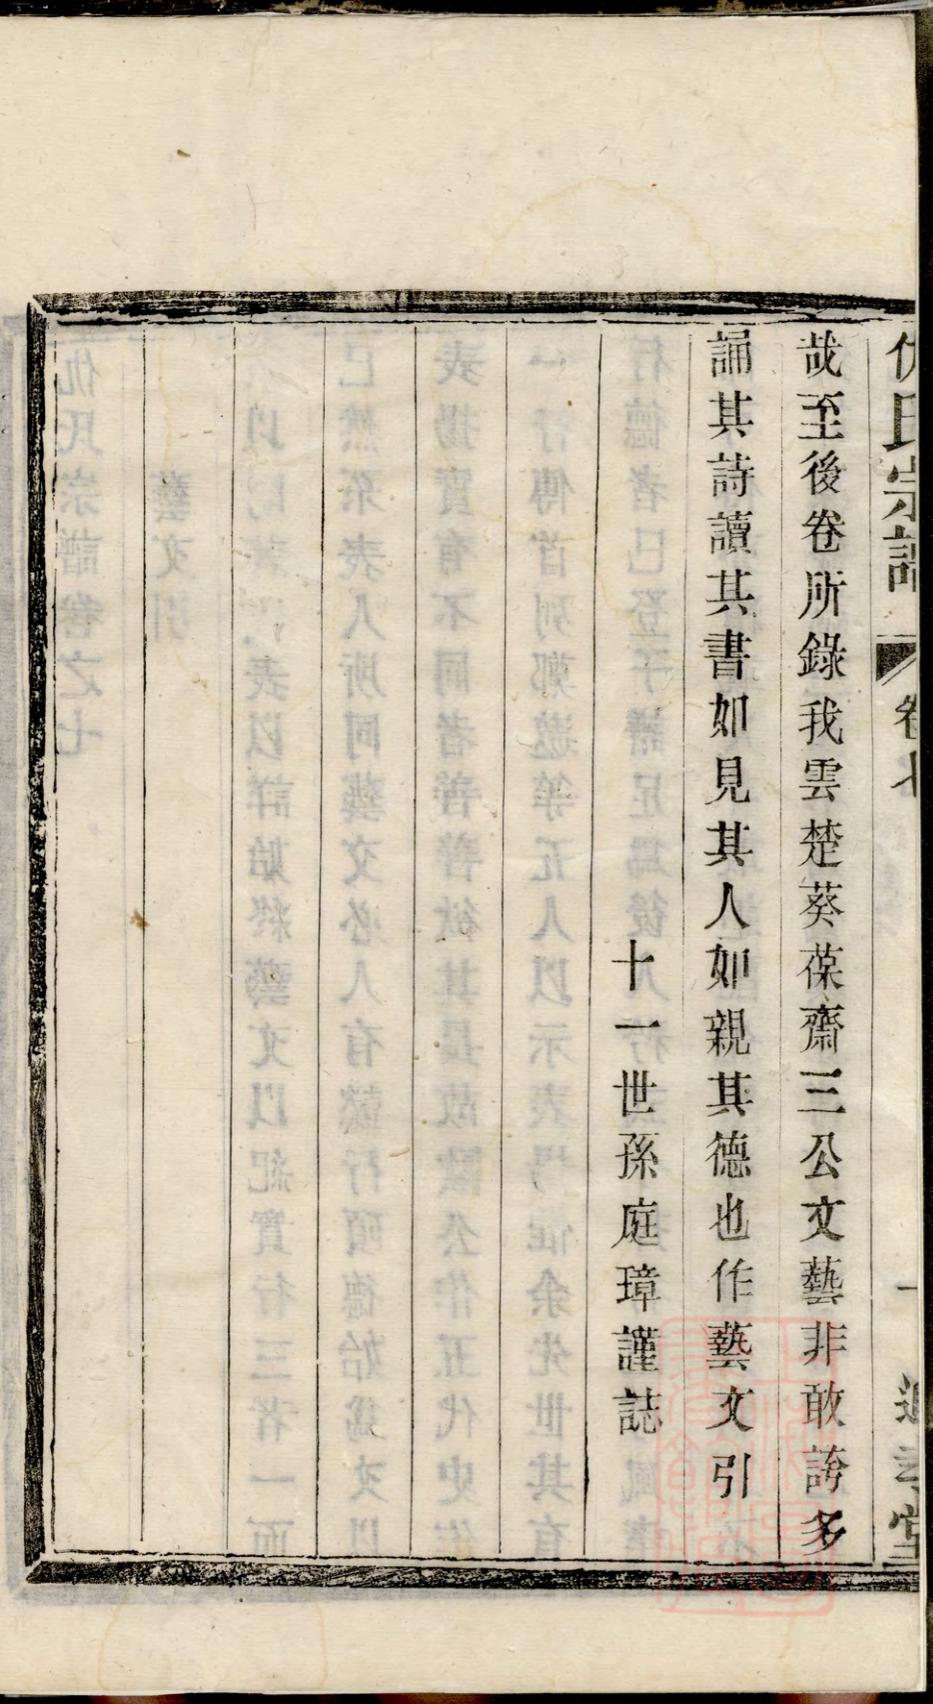 氏宗譜 卷七 一
哉至後卷所錄我雲楚葵葆齋三公文藝非敢誇多
誦其詩讀其書如見其人如親其德也作藝文引
十一世孫庭璋謹誌